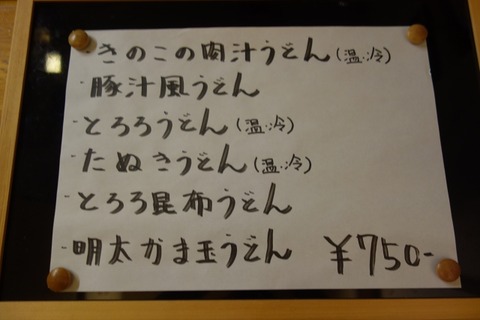 きのこの肉汁うどん(温・冷)
・豚汁風うどん
・とろろうどん(温・冷)
・たぬきうどん(温・冷)
・とろろ昆布うどん
・明太かま玉うどん ¥750-